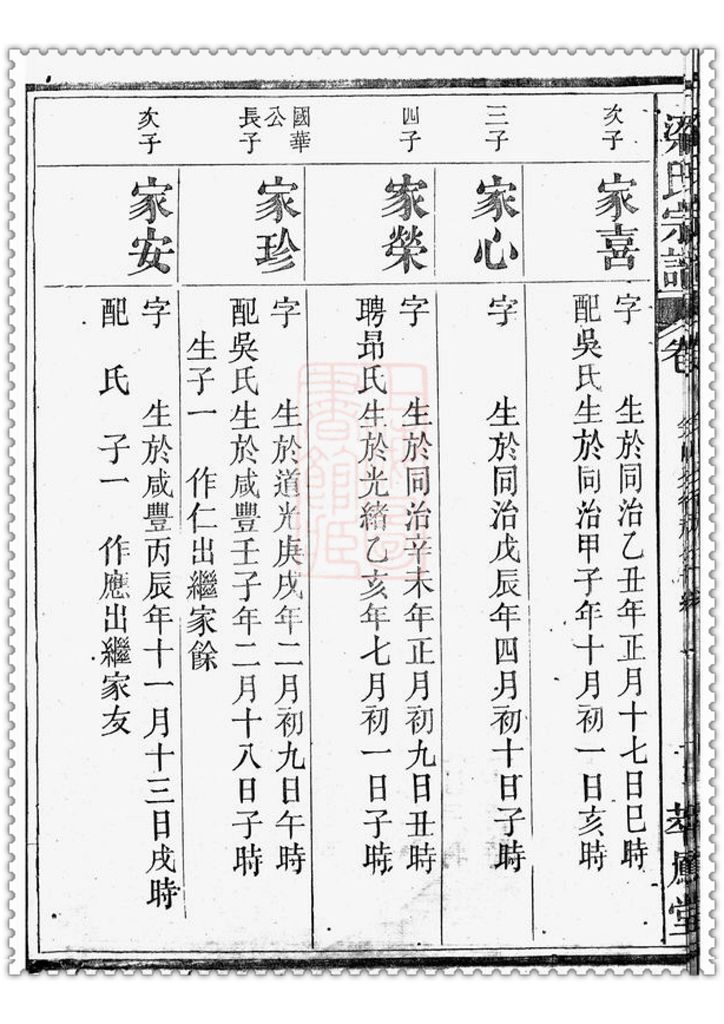 梁氏宗譜
卷
萃慶堂
次子
家喜
字 生於同治乙丑年正月十七日巳時
配吳氏生於同治甲子年十月初一日亥時
三子
家心
字 生於同治戊辰年四月初十日子時
四子
家榮
字 生於同治辛未年正月初九日丑時
聘昂氏生於光緒乙亥年七月初一日子時
國華
公
長子
家珍
字 生於道光庚戌年二月初九日午時
配吳氏生於咸豐壬子年二月十八日子時
生子一 作仁出繼家餘
次子
家安
字 生於咸豐丙辰年十一月十三日戌時
配 氏 子一 作應出繼家友